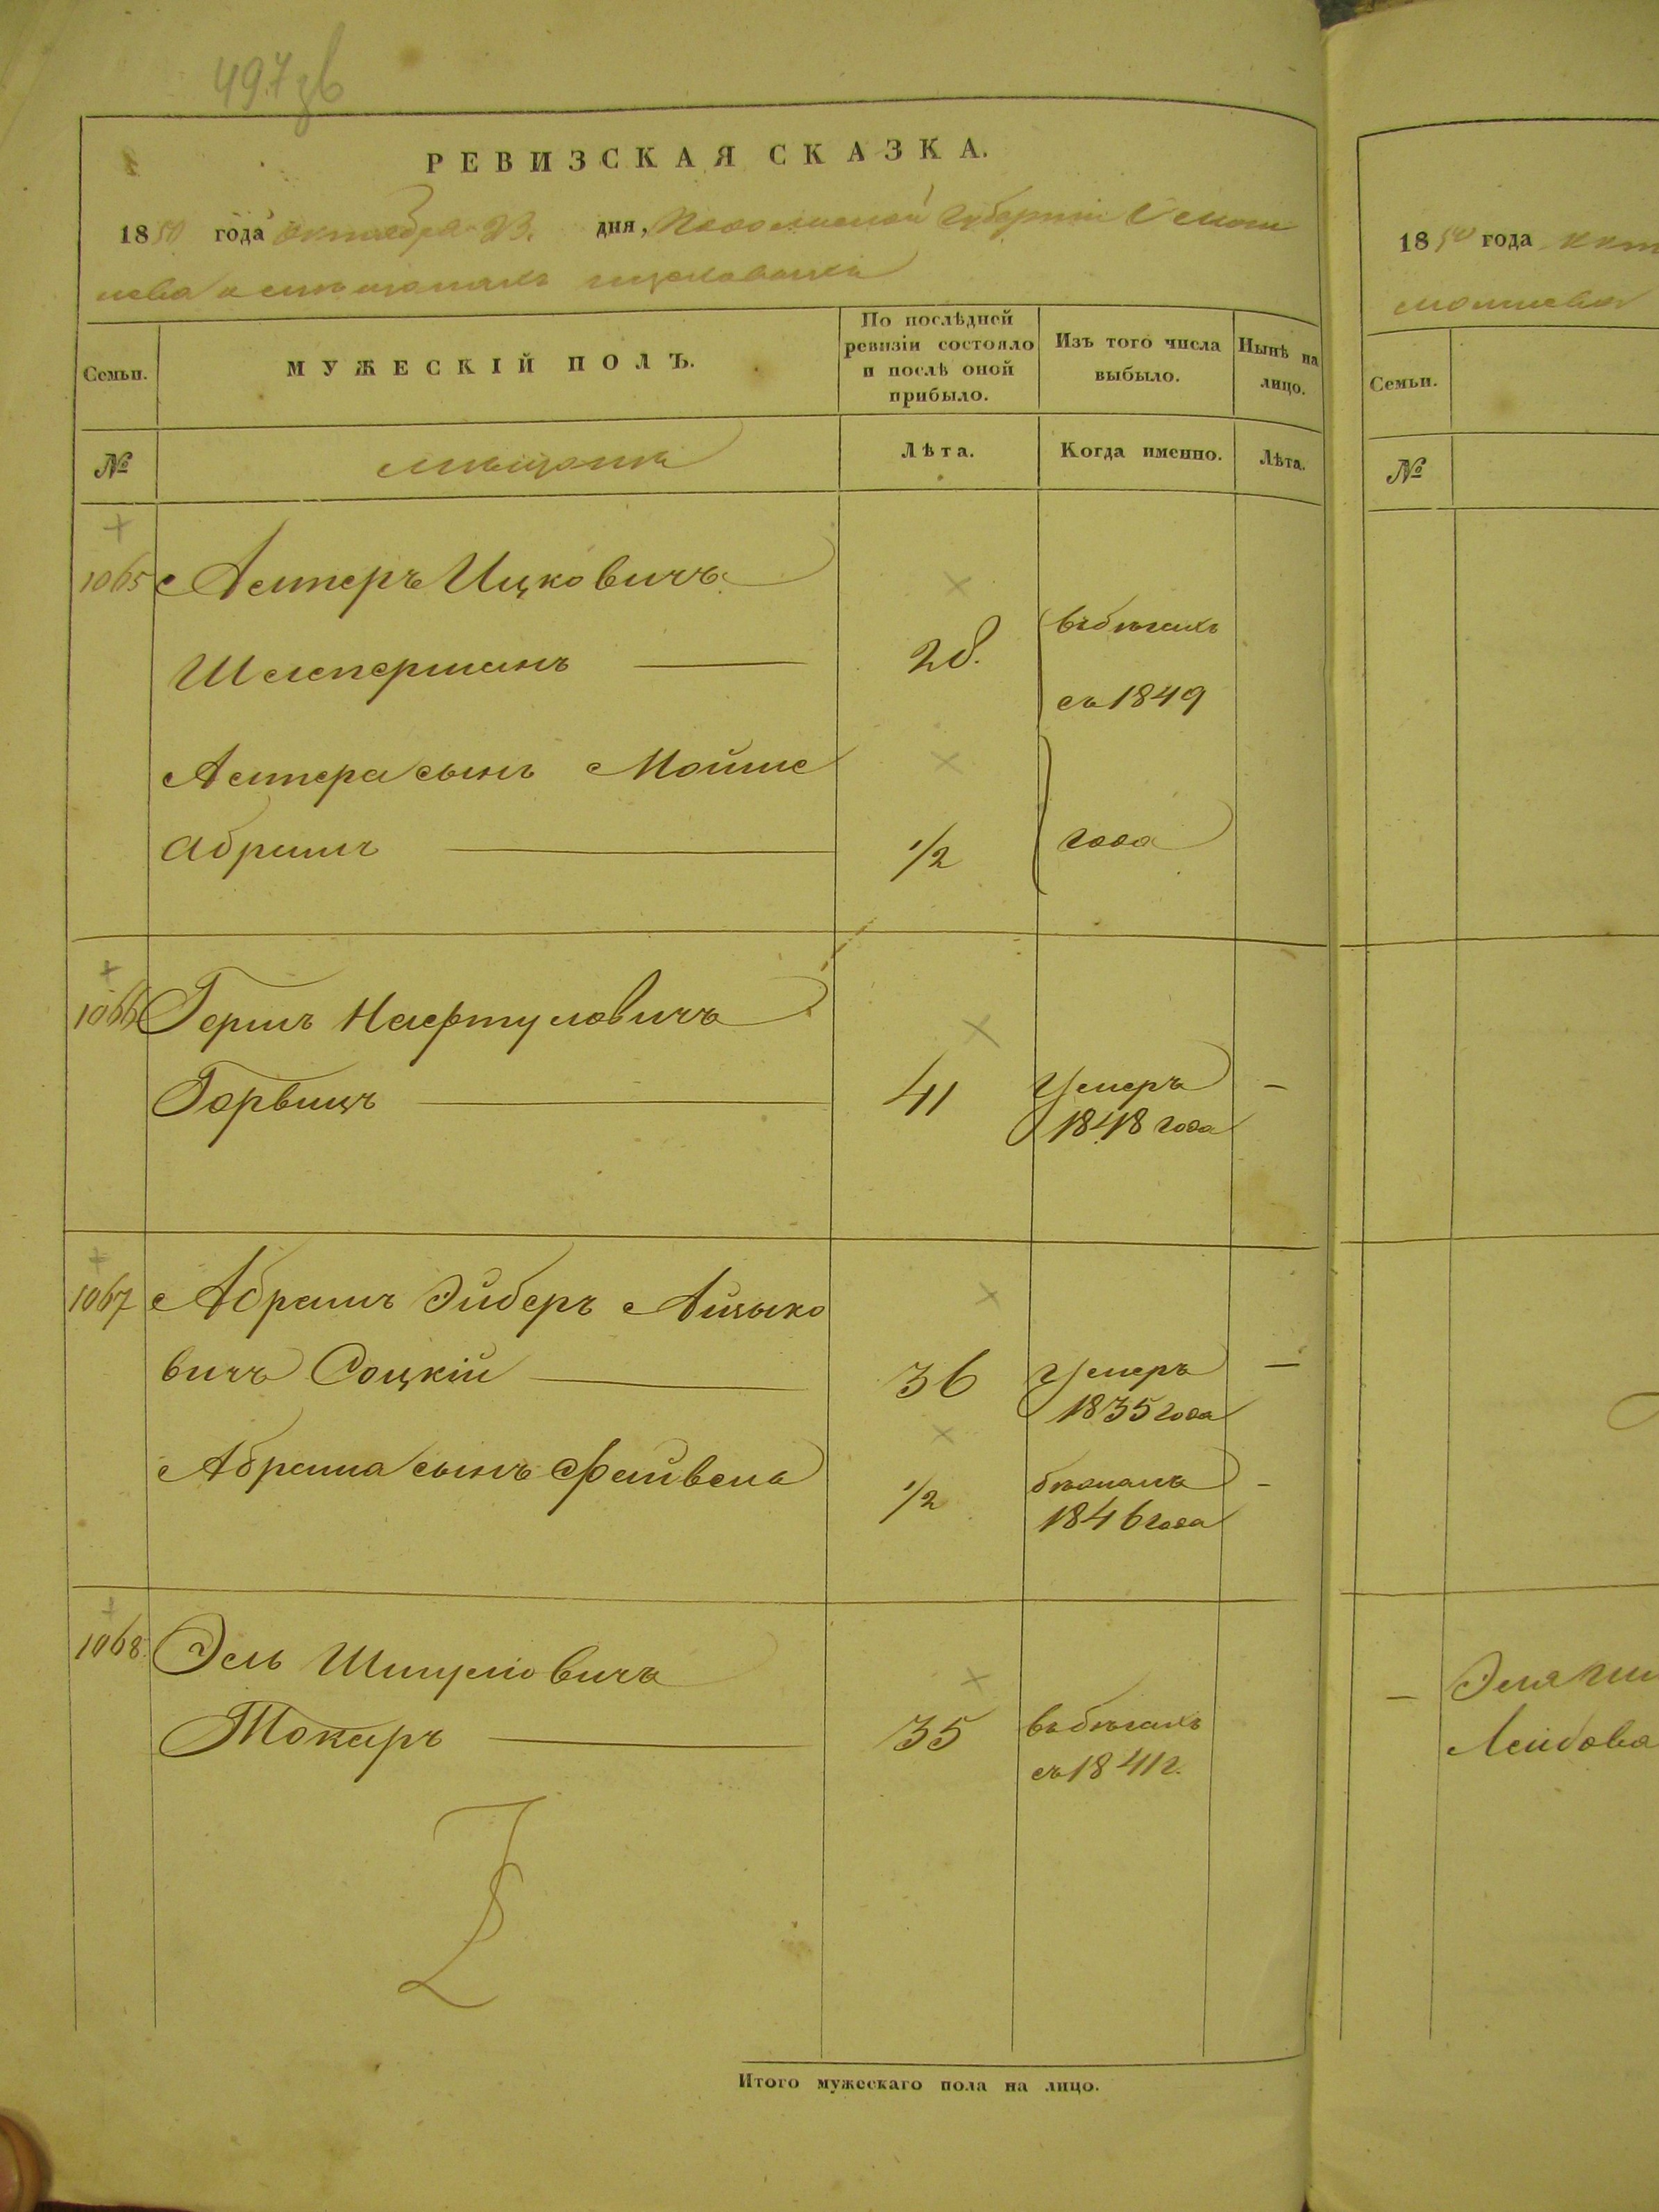 497зв
РЕВИЗСКАЯ СКАЗКА.
1850 года Октября 23. дня, Подольской Губерніи
о мѣщанахъ
Семьи.
МУЖЕСКІЙ ПОЛЪ.
По послѣдней ревизіи состояло и послѣ оной прибыло.
Изъ того числа выбыло.
Нынѣ на лицо.
№
мѣщане
Лѣта.
Когда именно.
Лѣта.
1065 Астеръ Ицковичъ
Шлеперманъ 28. въ бѣгахъ
съ 1849
Астера сынъ Мойше
Абрамъ 1/2 года
1066 Гершъ Нафтуловичъ
Горвицъ 41 Умеръ —
1848 года
1067 Абрамъ Эйберъ Айзыко
вичъ Соцкій 36 Умеръ —
1835 года
Абрама сынъ Файвель 1/2 бѣжалъ -
1846 года
1068. Эль Шмулёвичъ
Токаръ 35 въ бѣгахъ
съ 1841 г.
Итого мужескаго пола на лицо.
1850 года
Семьи.
№
— Эля
Лейбова